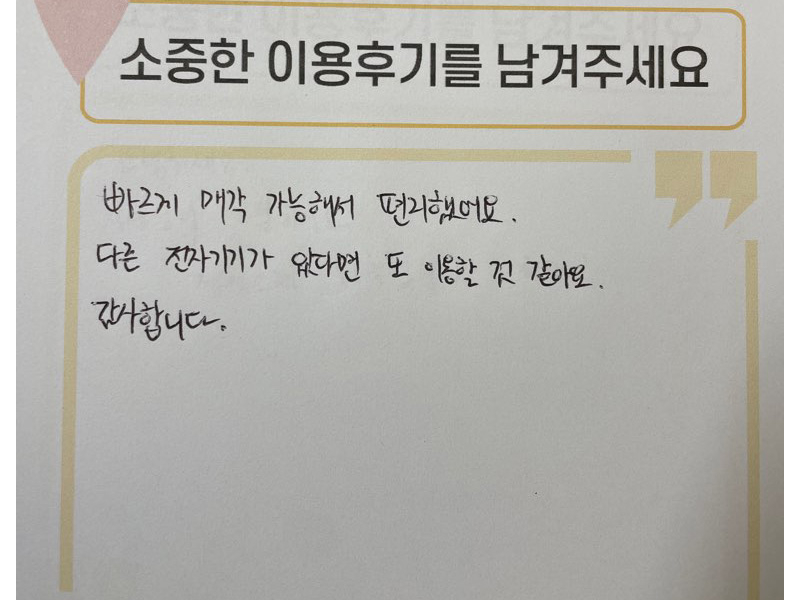 소중한 이용후기를 남겨주세요
빠르게 매각 가능해서 편리했어요.
다른 전자기기가 있다면 또 이용할 것 같아요.
감사합니다.